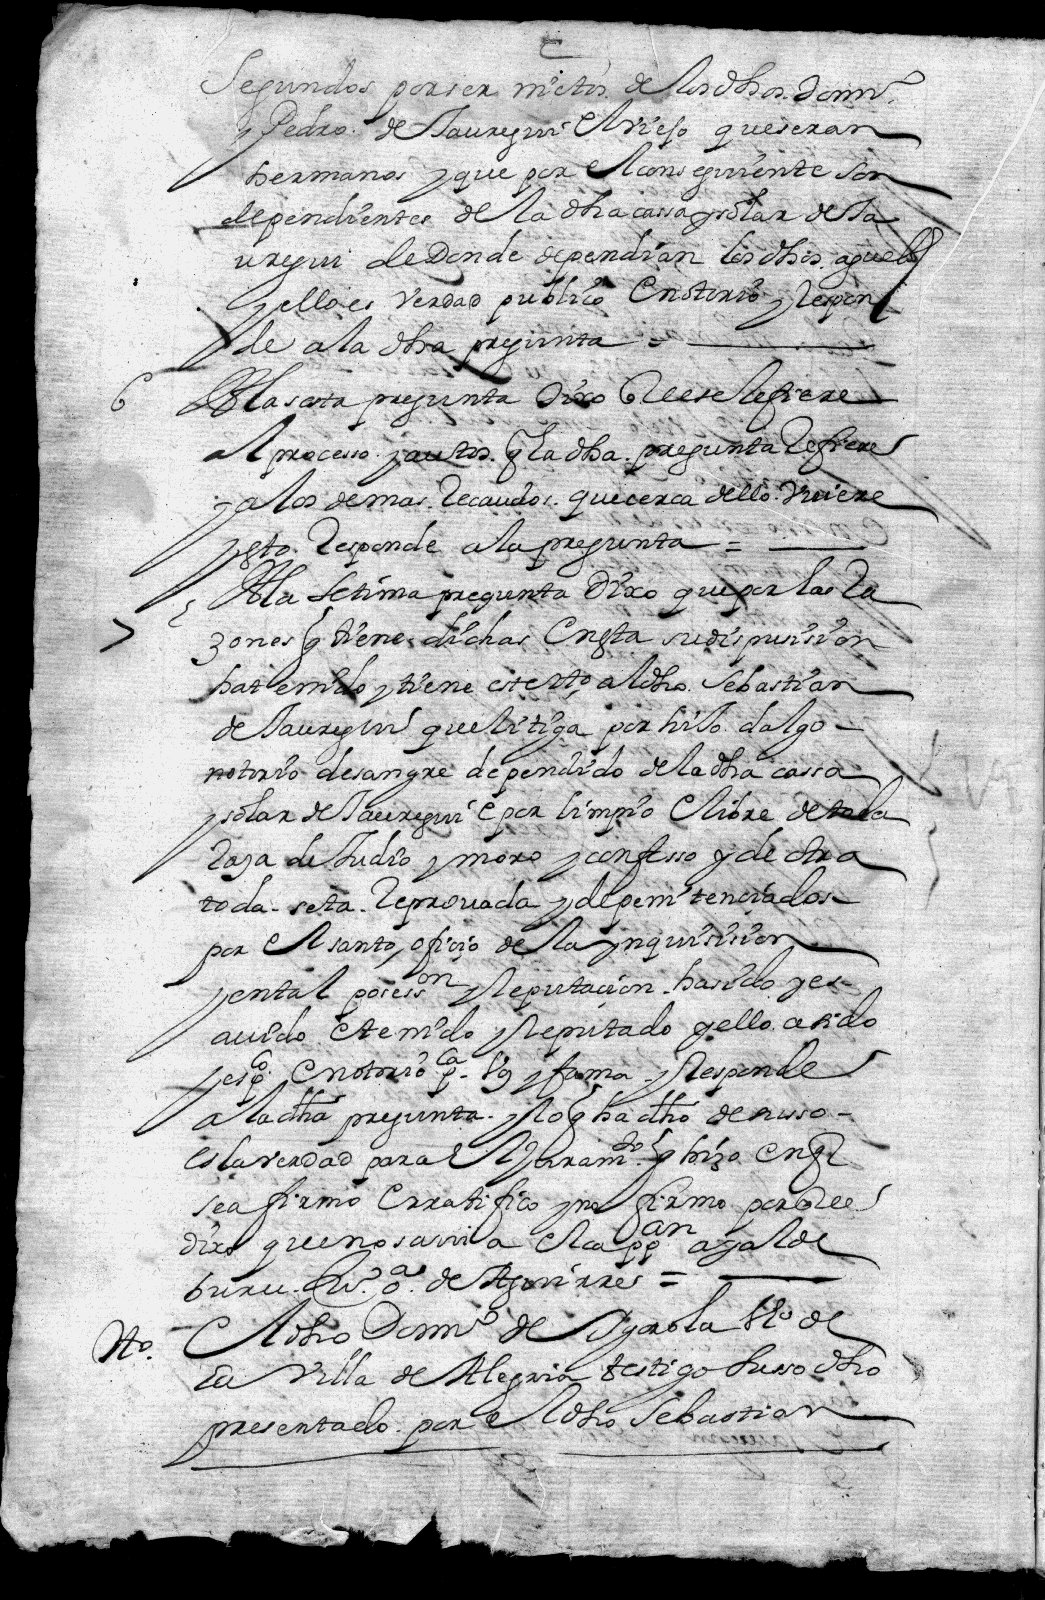 Segundos por ser nietos de los dhos. Domo.
y Pedro. de Jauregui el viejo que seran
hermanos y que por el conseguiente son
dependientes de la dha cassa y solar de Ja
uregui de Donde dependian los dhos. aguelos
y ello es verdad publico e notorio y Respon
de a la dha pregunta = ———
6 A la sesta pregunta dixo q ese Refiere
al processo. y autos. q la dha. pregunta Refiere
y a los demas. Recaudos. que cerca dello. Uuiere
y esto. Responde a la pregunta = ———
7 A la Setima pregunta Dixo que por las Ra
zones q tiene. dichas en esta su dispusision
ha tenido y tiene esterto al dho. Sebastian
de Jauregui que litiga por hijo dalgo -
notorio de sangre dependido de la dha cassa
y solar de Jauregui e por limpio e libre de toda
Raza de Judio y moro y confesso y de otra
toda. seta. Reprouada y de penitenciados -
por el santo oficio de la ynquisision
y en tal posesson y Reputacion. ha sido y es -
auido. e tenido y Reputado y ello. a sido
y es pco. e notorio pca. boz y fama. y Responde
a la dha pregunta. y lo q ha dho de susso -
es la verdad para el Juramto. q hizo en q
se afirmo e rratifico y no firmo por que
dixo que no sauia el cappan ayalde
buru. Ldo. oa. de Aguirres = ———
Tto. El dho Domo de Ygarola vzo de
la Villa de Alegria testigo susso dho
presentado. por el dho Sebastian